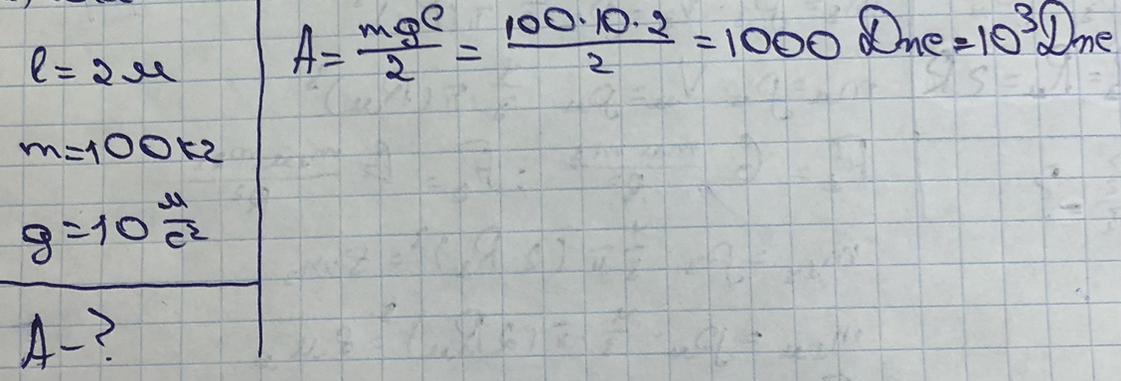 l = 2 м
m = 100 кг
g = 10 м/с²
A - ?
A = mgl/2 = 100·10·2/2 = 1000 Дже = 10³ Дже